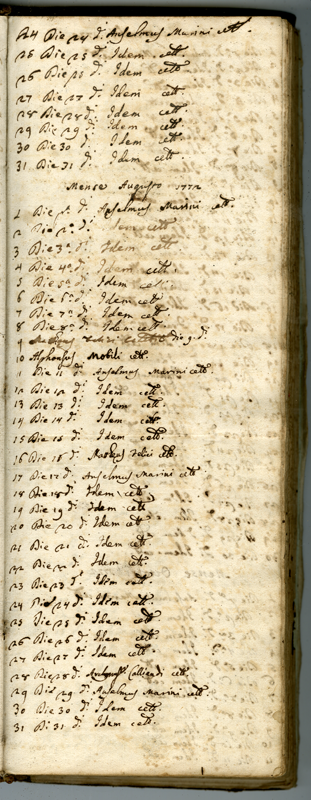 24 Die 24 d. Anselmus Marini cett.
25 Die 25 d. Idem cett.
26 Die 26 d. Idem cett.
27 Die 27 d. Idem cett.
28 Die 28 d. Idem cett.
29 Die 29 d. Idem cett.
30 Die 30 d. Idem cett.
31 Die 31 d. Idem cett.
Mense Augusto 1772
1 Die 1ª d. Anselmus Marini cett.
2 Die 2ª d. Idem cett.
3 Die 3ª d. Idem cett.
4 Die 4ª d. Idem cett.
5 Die 5ª d. Idem cett.
6 Die 6ª d. Idem cett.
7 Die 7ª d. Idem cett.
8 Die 8ª d. Idem cett.
9 die 9. d.
10 Alphonsus Mobili cett.
11 Die 11 d. Anselmus Marini cett.
12 Die 12 d. Idem cett.
13 Die 13 d. Idem cett.
14 Die 14 d. Idem cett.
15 Die 15 d. Idem cett.
16 Die 16 d. cett.
17 Die 17 d. Anselmus Marini cett.
18 Die 18 d. Idem cett.
19 Die 19 d. Idem cett.
20 Die 20 d. Idem cett.
21 Die 21 d. Idem cett.
22 Die 22 d. Idem cett.
23 Die 23 d. Idem cett.
24 Die 24 d. Idem cett.
25 Die 25 d. Idem cett.
26 Die 26 d. Idem cett.
27 Die 27 d. Idem cett.
28 Die 28 d. cett.
29 Die 29 d. Anselmus Marini cett.
30 Die 30 d. Idem cett.
31 Di 31 d. Idem cett.